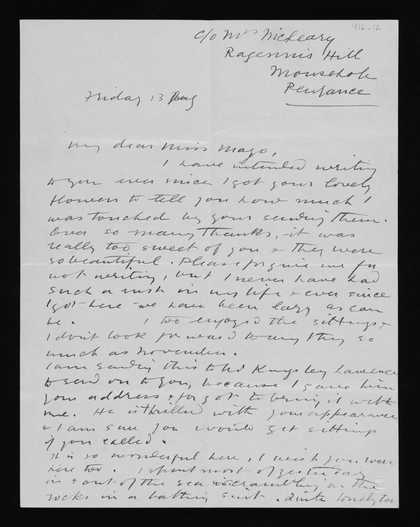 c/o Mrs McLeary
Raginnis Hill
Mousehole
Penzance
Friday 13 Aug
My dear Miss Mayo,
I have intended writing
to you ever since I got your lovely
flowers to tell you how much I
was touched by your sending them.
Ever so many thanks, it was
really too sweet of you & they were
so beautiful. Please forgive me for
not writing, but I never have had
such a rush in my life & ever since
I got here we have been lazy as can
be. I too enjoyed the sittings &
I don't look forward to anything so
much as November.
I am sending this to Kingsley Lawrence
to send on to you, because I gave him
your address & forgot to bring it with
me. He is thrilled with your appearance
& I am sure you would get sittings
if you called.
It is so wonderful here, I wish you were
here too. I spent most of yesterday
in & out of the sea & scrambling on the
rocks in a bathing suit. Quite lonely too